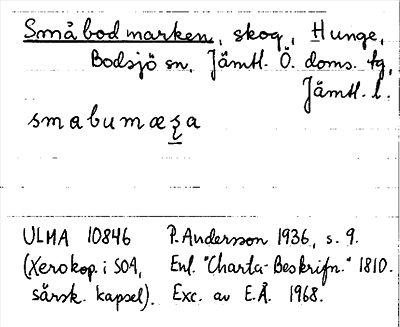 Småbodmarken, skog, Hunge,
Bodsjö sn, Jämtl. Ö. doms. tg,
Jämtl. l.
smabumæʒa
ULMA 10846 P. Andersson 1936, s. 9.
(Xerokop. i SOA, Enl. "Charta-Beskrifn." 1810.
särsk. kapsel). Exc. av E.Å. 1968.